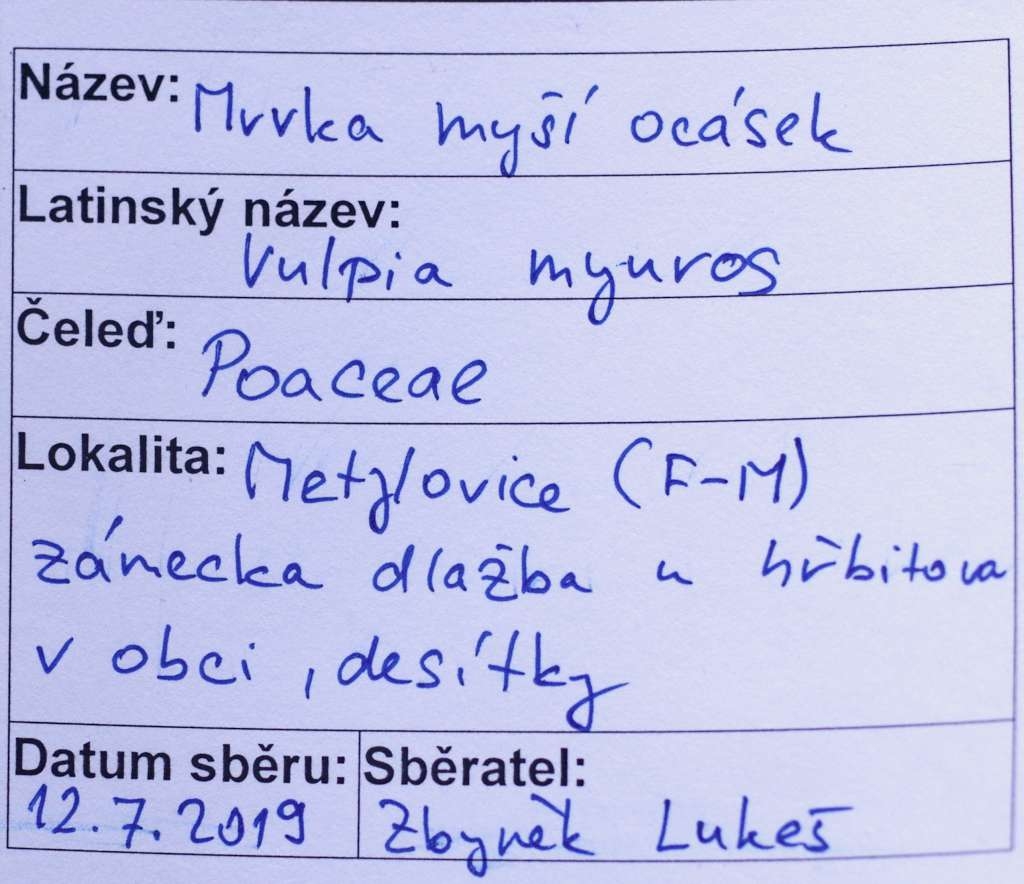 Název: Mrvka myší ocásek
Latinský název:
Vulpia myuros
Čeleď: Poaceae
Lokalita: Metylovice (F-M)
zámecka dlažba u hřbitova
v obci, desítky
Datum sběru: Sběratel:
12.7.2019 Zbyněk Lukeš